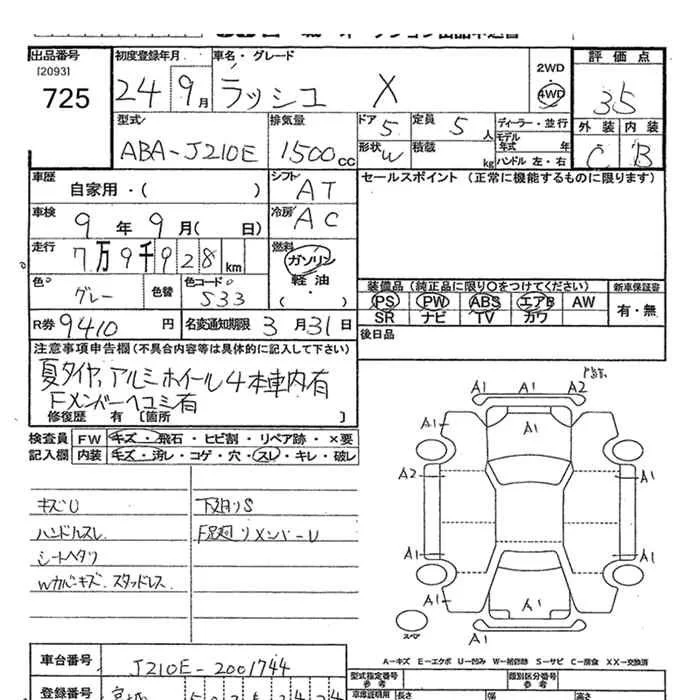 出品番号
[2093]
725
初度登録年月
24 9月
車名・グレード
ラッシュ X
2WD
4WD
評価点
3.5
外装 内装
C B
型式
ABA-J210E
排気量
1500cc
ドア 5
形状 W
定員 5人
積載 kg
ディーラー・並行
モデル年式 年
ハンドル 左・右
車歴
自家用・( )
シフト
AT
セールスポイント (正常に機能するものに限ります)
車検
9年9月( 日)
冷房
AC
走行
7万9千928km
燃料
ガソリン
軽油
・( )
色
グレー
色替
色コード
S33
装備品 (純正品に限り○をつけてください)
新車保証書
PS PW ABS エアB AW
SR ナビ TV カワ
有・無
R券 9410円
名変通知期限 3月31日
後日品
注意事項申告欄(不具合内容等は具体的に記入して下さい)
夏タイヤ、アルミホイール4本車内有
Fメンバーヘコミ有
修復歴 有 [箇所 ]
検査員記入欄
FW キズ・飛石・ヒビ割・リペア跡・×要
内装 キズ・汚レ・コゲ・穴・スレ・キレ・破レ
キズU
ハンドルスレ
シートヘタリ
Wカバーキズ、スタッドレス
下廻りS
F足廻りメンバーU
A1 A1 A2
A1 A1 A1
A2 A1
A1 A1
A1 A1 A1
スペア
A…キズ E…エクボ U…凹み W…補修跡 S…サビ C…腐食 XX…交換済
車台番号
J210E-2001744
登録番号
宮城
型式指定番号
類別区分番号
参考
参考
車庫証明用
長さ
幅
高さ